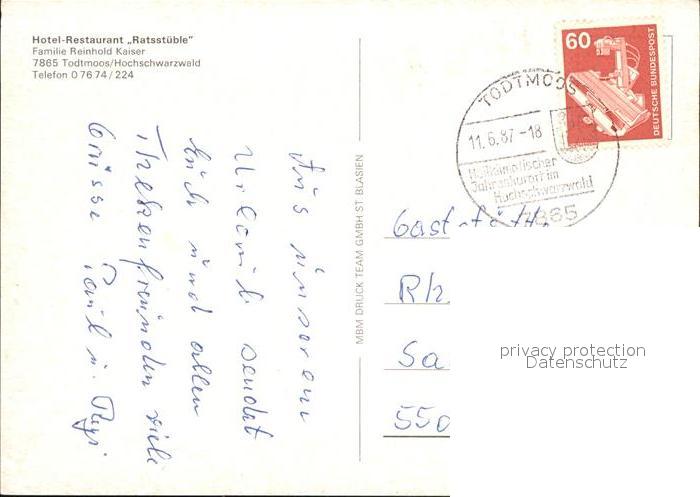 Hotel-Restaurant „Ratsstüble"
Familie Reinhold Kaiser
7865 Todtmoos/Hochschwarzwald
Telefon 0 76 74 / 224
Aus unserem
Urlaub sendet
Euch und allen
Thekenfreunden viele
Grüsse Paul u.
MBM DRUCK TEAM GMBH ST BLASIEN
60
DEUTSCHE BUNDESPOST
TODTMOOS
11.6.87-18
Heilklimatischer
Jahreskurort im
Hochschwarzwald
7865
Gaststätte
Rh
Sa
550
privacy protection
Datenschutz